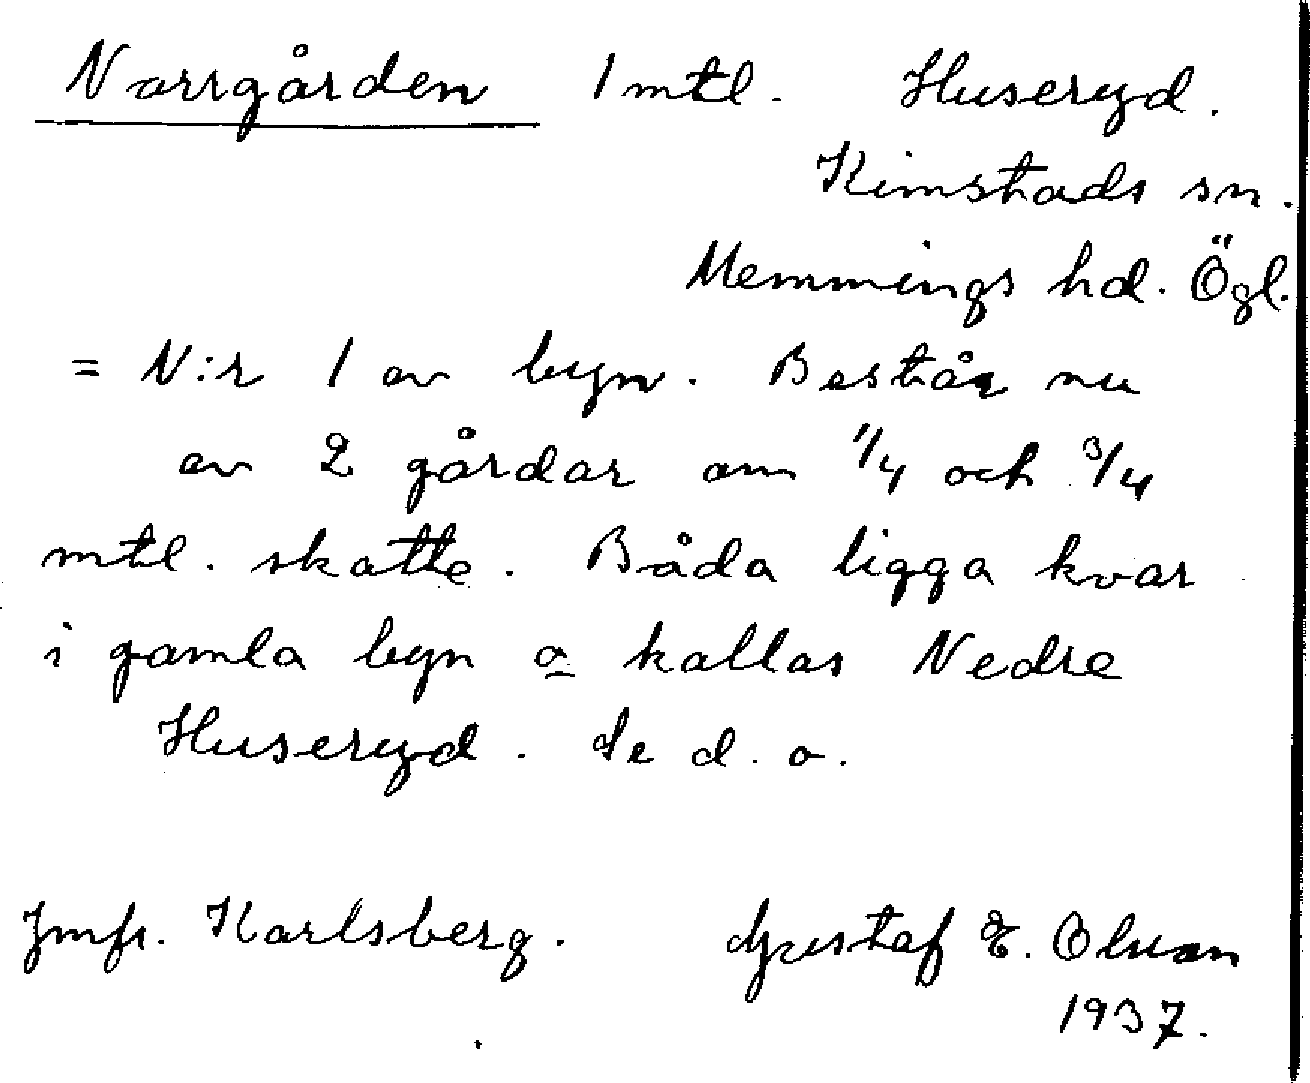 Norrgården 1 mtl. Huseryd.
Kimstads sn.
Memmings hd. Ögl.
= N:r 1 av byn. Består nu
av 2 gårdar om 1/4 och 3/4
mtl. skatte. Båda ligga kvar
i gamla byn o kallas Nedre
Huseryd. Se d. o.
Jmfr. Karlsberg. Gustaf E. Olson
1937.